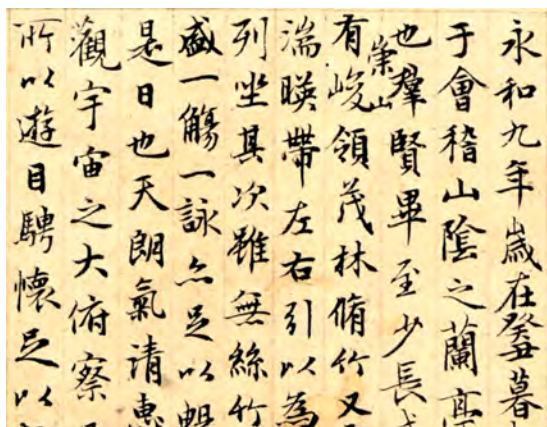 永和九年歲在癸丑暮
于會稽山陰之蘭亭
也羣賢畢至少長咸
有崇山峻領茂林脩竹又
湍暎帶左右引以為
列坐其次雖無絲竹
盛一觴一詠亦足以暢
是日也天朗氣清惠
觀宇宙之大俯察
所以遊目騁懷足以